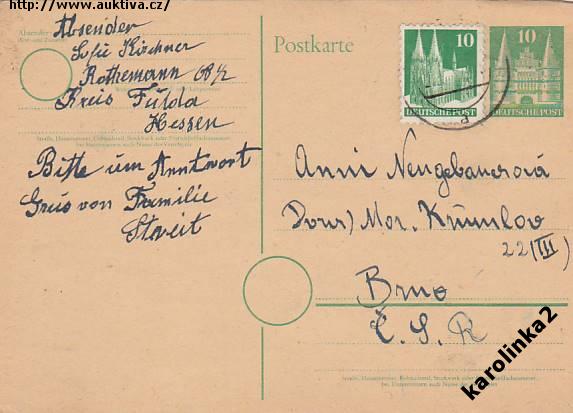 http://www.auktiva.cz/
Absender
Sofie Kirchner
Rothemann 68½
Kreis Fulda
Hessen
Bitte um Anntwort
Grus von Familie
Streit
Postkarte
10
DEUTSCHE POST
10
DEUTSCHE POST
Anni Neugebauerová
Mor. Krumlov
22 (III)
Brno
Č. S. R
karolinka2